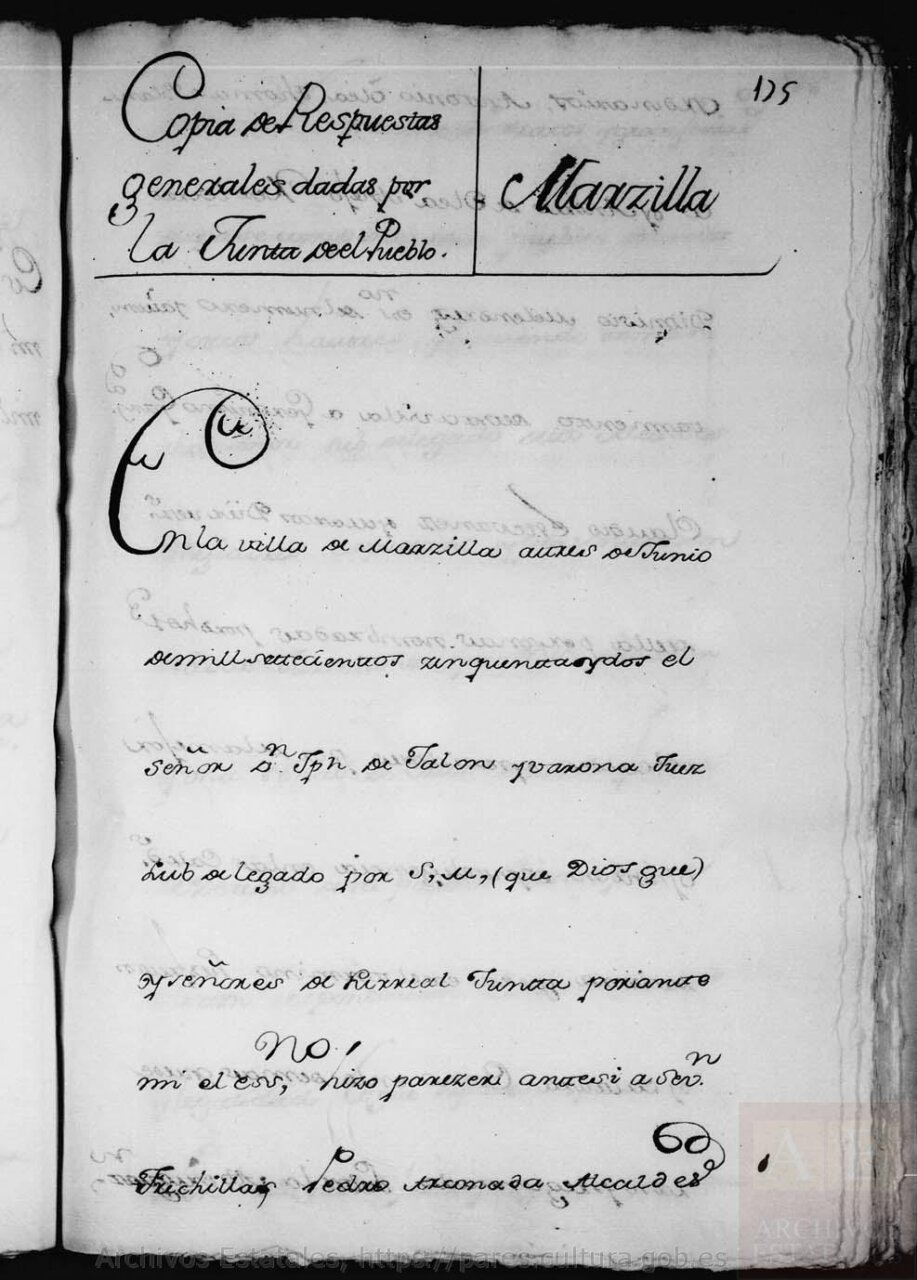 175
Copia de Respuestas
generales dadas por
la Junta de el Pueblo.
Marzilla
En la villa de Marzilla a tres de Junio
de mill settecienttos zinquenta y dos el
Señor Dn. Jph de Jalon y varona Juez
Sub delegado por S, M, (que Dios gue)
y señores de Juntta por antte
mi el essno, hizo parezer antte si a Sevn.
Juchillas, Pedro Arconada Alcaldes
Archivos Estatales, https://pares.cultura.gob.es